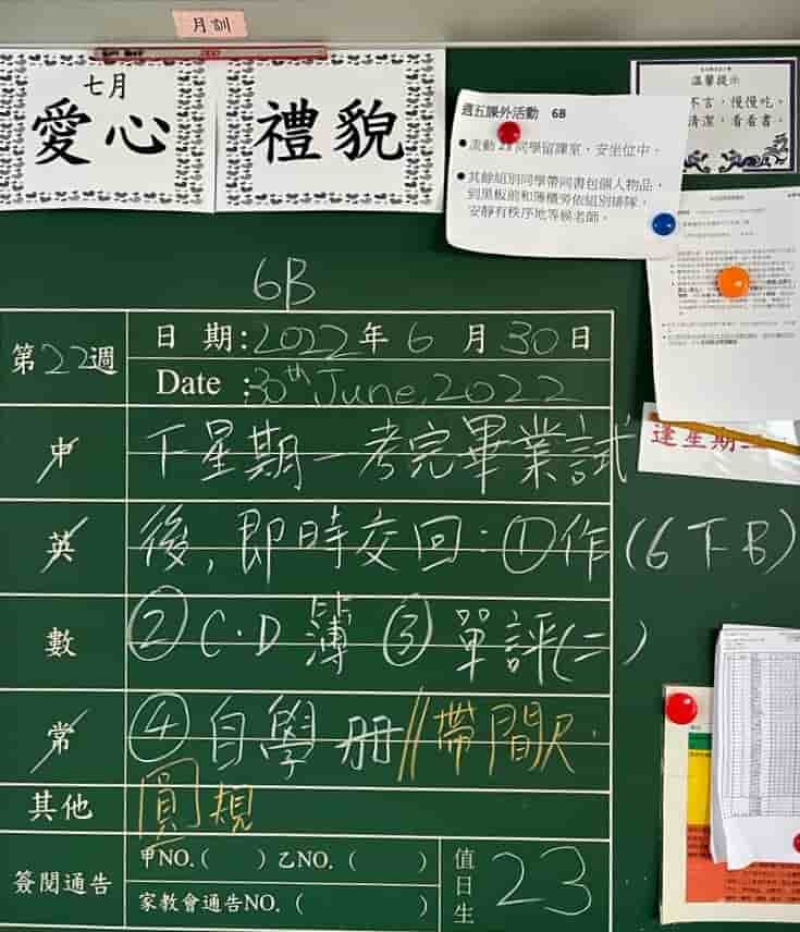 月訓
七月
愛心
禮貌
週五課外活動 6B
同學留課室，安坐位中。
其餘組別同學帶同書包個人物品，
到黑板前和簿櫃旁依組別排隊，
安靜有秩序地等候老師。
溫馨提示
不言，慢慢吃。
清潔，看看書。
逢星期
6B
第22週
日 期:2022年6月30日
Date :30th June, 2022
中
下星期一考完畢業試
英
後，即時交回：①作(6下B)
數
②C.D簿 ③單評(二)
常
④自學冊//帶間尺.
其他
圓規
簽閱通告
甲NO.( ) 乙NO.( )
家教會通告NO.( )
值日生
23